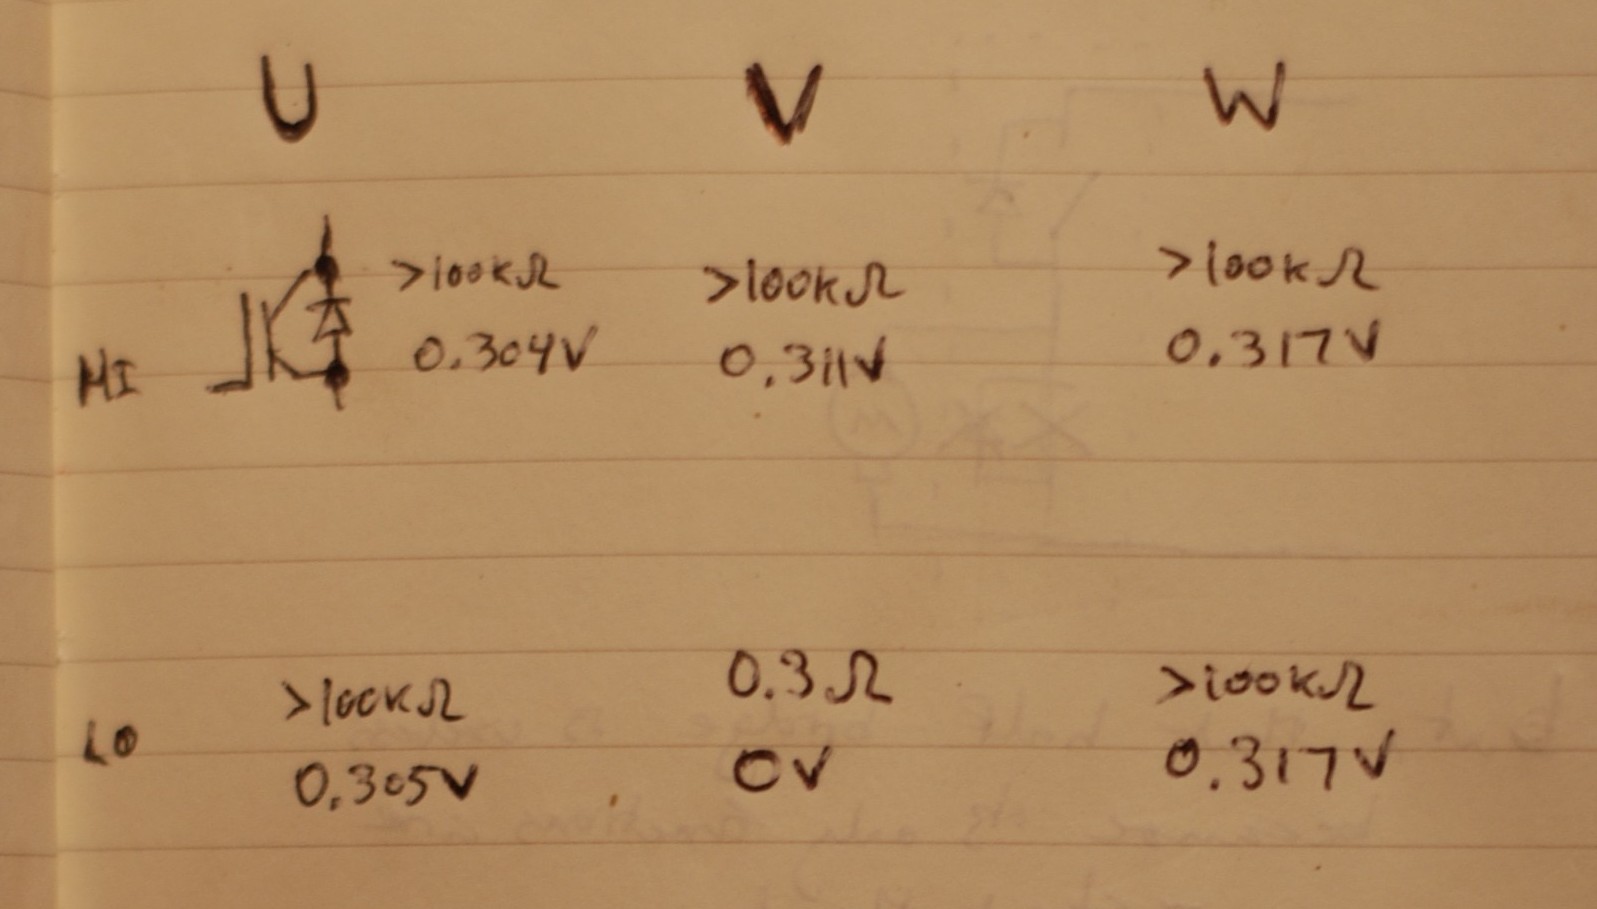 U V W
>100kΩ >100kΩ >100kΩ
HI 0.304V 0.311V 0.317V
>100kΩ 0.3Ω >100kΩ
LO 0.305V 0V 0.317V